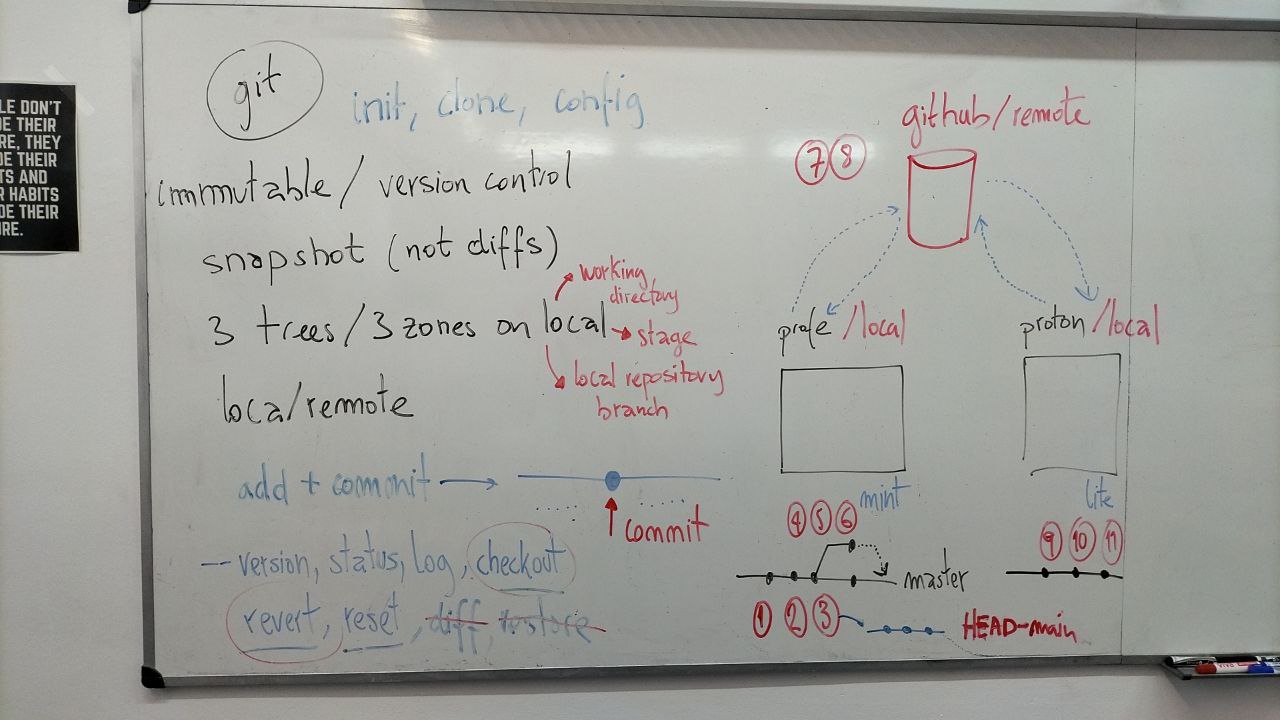 LE DON'T
DE THEIR
RE, THEY
DE THEIR
TS AND
R HABITS
DE THEIR
RE.
git
init, clone, config
immutable / version control
snapshot (not diffs)
3 trees/3 zones on local
working directory
stage
local repository
branch
local/remote
add + commit
commit
--version, status, log, checkout
revert, reset, diff, restore
github/remote
7 8
profe/local
proton/local
mint
lite
4 5 6
master
1 2 3
HEAD-main
9 10 11
VIVO